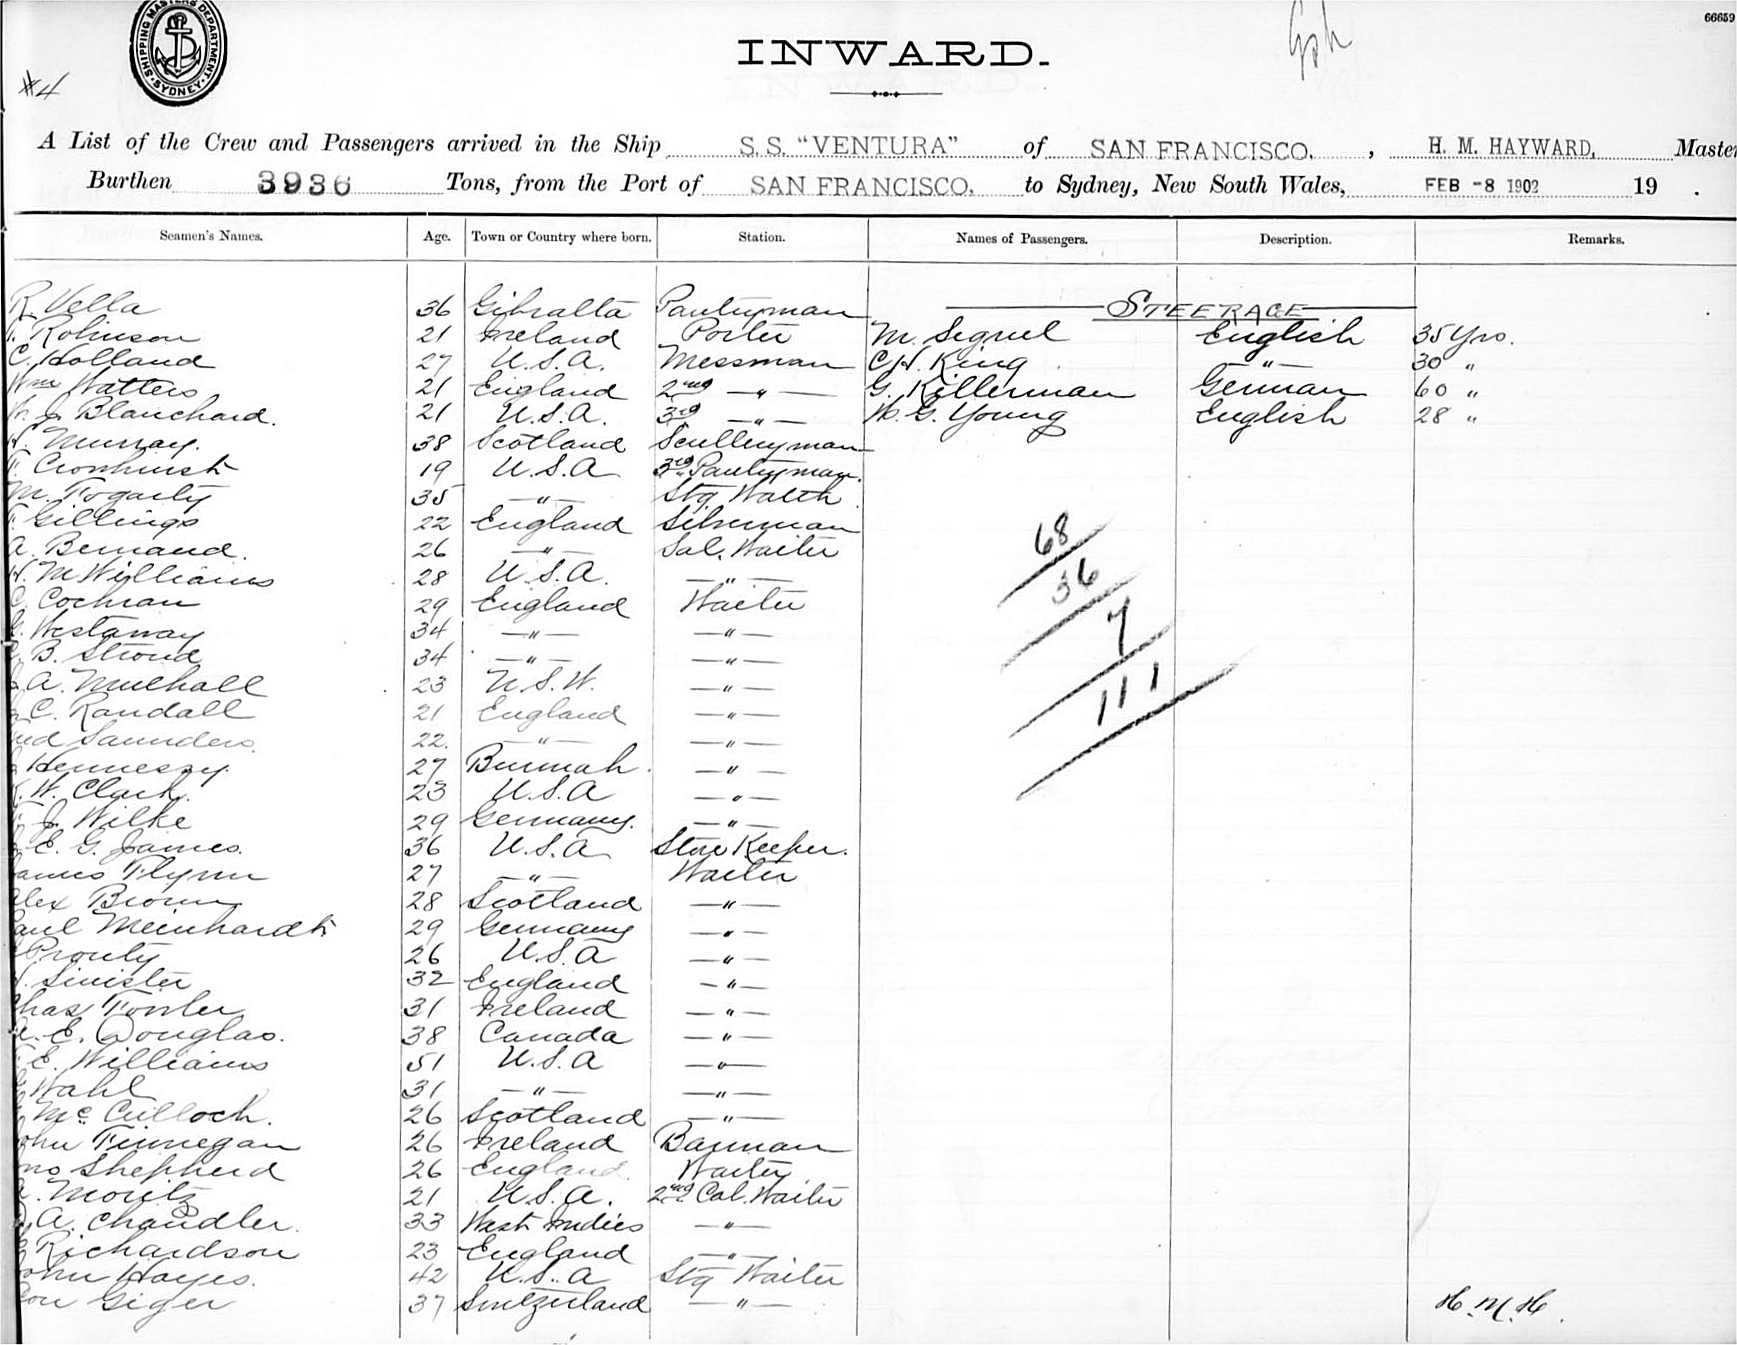 66659
SHIPPING MASTERS DEPARTMENT
SYDNEY
#4
INWARD.
A List of the Crew and Passengers arrived in the Ship S. S. "VENTURA" of SAN FRANCISCO, , H. M. HAYWARD, Master
Burthen 3936 Tons, from the Port of SAN FRANCISCO, to Sydney, New South Wales, FEB -8 1902 19 .
Seamen's Names. Age. Town or Country where born. Station. Names of Passengers. Description. Remarks.
STEERAGE
R Vella 36 Gibralta Pantryman
Robinson 21 Ireland Porter M. Segnel English 35 Yrs.
C. Holland 27 U.S.A. Messman C.H. King —"— 30 "
Wm Watters 21 England 2nd —"— G. Killerman German 60 "
J Blanchard. 21 U.S.A. 3rd —"— W. G. Young English 28 "
Murray. 38 Scotland Sculleryman
Cronhurst 19 U.S.A 3rd Pantryman.
M. Fogarty 35 —"— Stg Waiter
Gillings 22 England Silverman
A. Bernand. 26 —"— Sal. Waiter
H. M Williams 28 U.S.A. —"—
C. Cochran 29 England Waiter
Westaway 34 —"— —"—
B. Stroud 34 —"— —"—
A. Mulhall 23 N.S.W. —"—
C. Randall 21 England —"—
Saunders. 22. —"— —"—
Hennessy. 27 Burmah. —"—
W. Clark. 23 U.S.A —"—
J. Wilke 29 Germany. —"—
E. G. James. 36 U.S.A Store Keeper.
James Flynn 27 —"— Waiter
Alex Brown 28 Scotland —"—
Paul Meinhardt 29 Germany —"—
Prouty 26 U.S.A —"—
Sinister 32 England —"—
Chas Fowler 31 Ireland —"—
E. Douglas. 38 Canada —"—
E. Williams 51 U.S.A —"—
Wahl 31 —"— —"—
McCulloch. 26 Scotland —"—
John Finnegan 26 Ireland Barman
Jno Shepherd 26 England Waiter
Moritz 21 U.S.A. 2nd Cal. Waiter
A. Chandler. 33 West Indies —"—
Richardson 23 England —"—
John Hayes. 42 U.S.A Stg Waiter
Giger 37 Switzerland —"—
68
36
7
111
H.M.H.